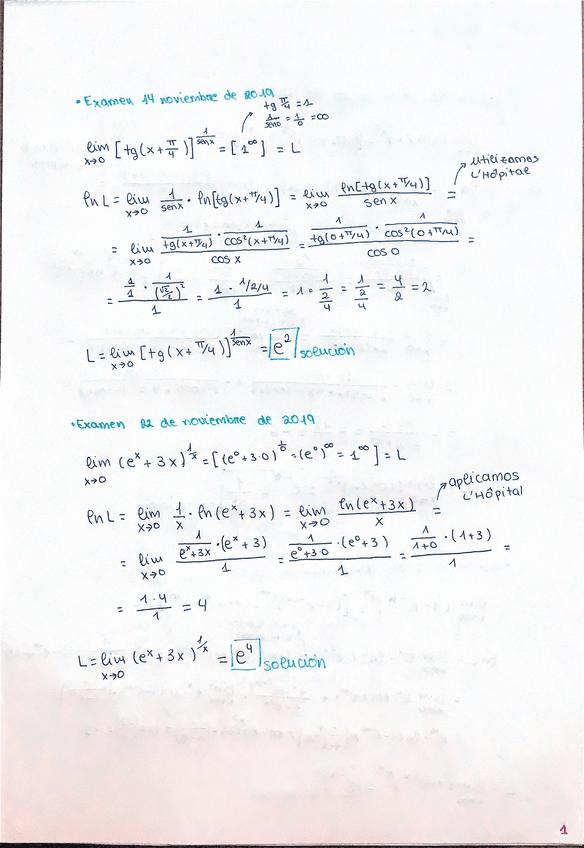 • Examen 14 noviembre de 2019
tg π/4 = 1
1/sen0 = 1/0 = ∞
lim x→0 [tg(x + π/4)]^(1/senx) = [1^∞] = L
utilizamos
L'Hôpital
ln L = lim x→0 1/senx · ln[tg(x+π/4)] = lim x→0 ln[tg(x+π/4)]/sen x =
= lim x→0 (1/tg(x+π/4) · 1/cos²(x+π/4))/cos x = (1/tg(0+π/4) · 1/cos²(0+π/4))/cos 0 =
= (1/1 · 1/(√2/2)²)/1 = (1 · 1/2/4)/1 = 1 · 1/(2/4) = 1/(2/4) = 4/2 = 2
L = lim x→0 [tg(x + π/4)]^(1/senx) = e² solución
• Examen 22 de noviembre de 2019
lim x→0 (e^x + 3x)^(1/x) = [(e^0 + 3·0)^(1/0) = (e^0)^∞ = 1^∞] = L
aplicamos
L'Hôpital
ln L = lim x→0 1/x · ln(e^x + 3x) = lim x→0 ln(e^x + 3x)/x =
= lim x→0 (1/(e^x + 3x) · (e^x + 3))/1 = (1/(e^0 + 3·0) · (e^0 + 3))/1 = (1/(1+0) · (1+3))/1 =
= (1·4)/1 = 4
L = lim x→0 (e^x + 3x)^(1/x) = e⁴ solución
1